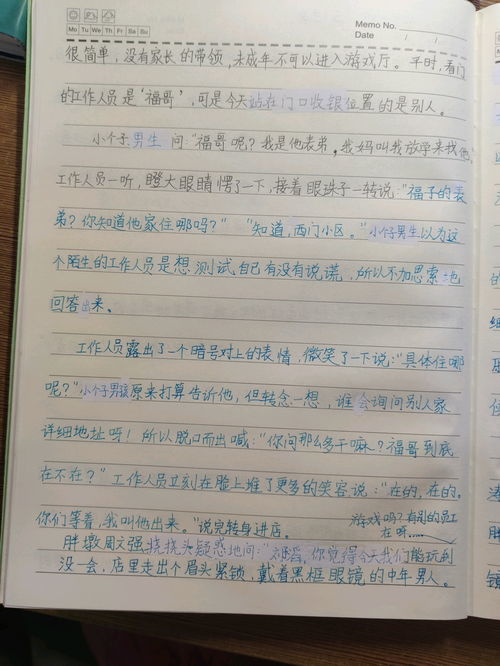 Memo No.
Mo Tu We Th Fr Sa Su
Date / /
很简单，没有家长的带领，未成年不可以进入游戏厅。平时，看门
的工作人员是‘福哥’，可是今天站在门口收银位置的是别人。
小个子男生问：“福哥呢？我是他表弟，我妈叫我放学来找他。
工作人员一听，瞪大眼睛愣了一下，接着眼珠子一转说：“福子的表
弟？你知道他家住哪吗？”“知道，西门小区。”小个子男生以为这
个陌生的工作人员是想测试自己有没有说谎，所以不加思索地
回答出来。
工作人员露出了一个暗号对上的表情，微笑了一下说：“具体住哪
呢？”小个子男孩原来打算告诉他，但转念一想，谁会询问别人家
详细地址呀！所以脱口而出喊：“你问那么多干嘛？福哥到底
在不在？”工作人员立刻在脸上堆了更多的笑容说：“在的，在的。
你们等着，我叫他出来。”说完转身进店。
游戏吗？有别的员工
在呀……”
胖墩周文强挠挠头疑惑地问：“，你觉得今天我们能玩到
没一会，店里走出个眉头紧锁，戴着黑框眼镜的中年男人。